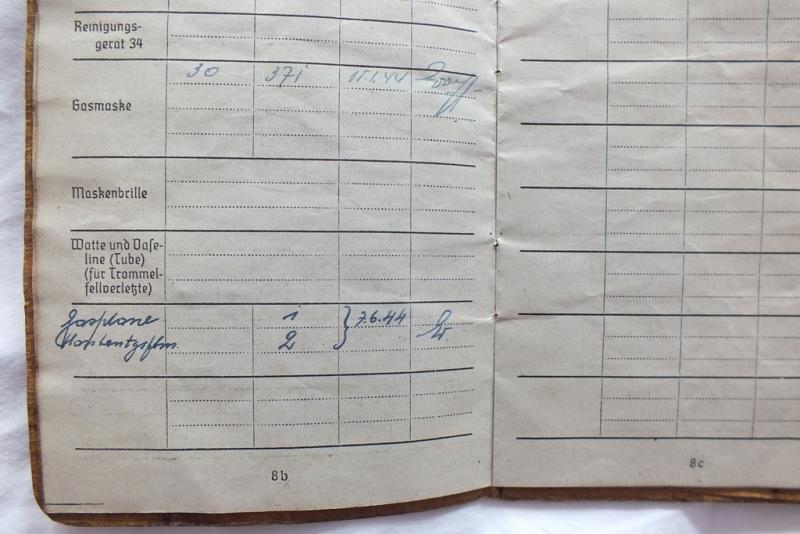 Reinigungs-
gerät 34
30 37i 11.1.44
Gasmaske
Maskenbrille
Watte und Vase-
line (Tube)
(für Trommel-
fellverletzte)
Gasplane 1 } 7.6.44
2
8b
8c